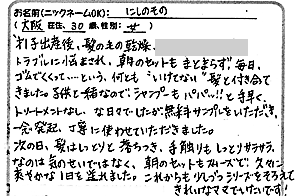 お名前(ニックネームOK): にしのもの
(大阪 在住、30歳、性別: 女)
第1子出産後、髪の毛の乾燥、
トラブルに悩まされ、朝のセットも まとまらず 毎日、
ゴムでくくって…という、何とも "いけてない" 髪と付き合って
きました。子供と一緒なので シャンプーも パパッ!!と手早く、
トリートメントなし、な日々でしたが無料サンプルをいただき、
一念発起、丁寧に使わせていただきました。
次の日、髪はしっとりと落ちつき、手触りもしっとりサラサラ。
なのは気のせいではなく、朝のセットもスムーズで、久々に
爽やかな1日を送れました。これからも少しづつシリーズをそろえて
きれいなママでいたいです!